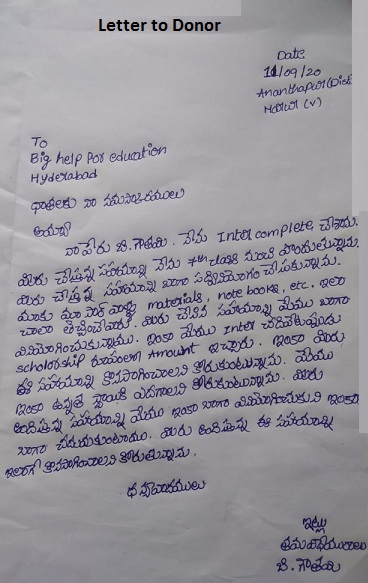 Letter to Donor
Date
11/09/20
Ananthapur(Dist
(V)
To
Big help For education
Hyderabad
దాతలకు నా నమస్కారములు
అయ్యా
నా పేరు బి. గౌతమి. నేను Inter complete చేశాను.
మీరు చేస్తున్న సహాయాన్ని నేను 7th class నుంచి పొందుతున్నాను.
మీరు చేస్తున్న సహాయాన్ని బాగా సద్వినియోగం చేసుకున్నాను.
మాకు మా సార్ వాళ్ళు materials, note books, etc. ఇలా
చాలా తెచ్చిచేవారు. మీరు చేసిన సహాయాన్ని మేము బాగా
వినియోగించుకున్నాము. ఇంకా మేము Inter చదివేటప్పుడు
scholorship రూపంలో Amount ఇచ్చారు. ఇంకా మీరు
ఈ సహాయాన్ని కొనసాగించాలని కోరుకుంటున్నాను. మేము
ఇంకా ఉన్నత స్థాయికి ఎదగాలని కోరుకుంటున్నాను. మీరు
అందిస్తున్న సహాయాన్ని మేము ఇంకా బాగా వినియోగించుకుని ఇంకా
బాగా చదువుకుంటాము. మీరు అందిస్తున్న ఈ సహాయాన్ని
ఇలాగే కొనసాగించాలని కోరుతున్నాను.
ధన్యవాదములు
ఇట్లు
బి. గౌతమి